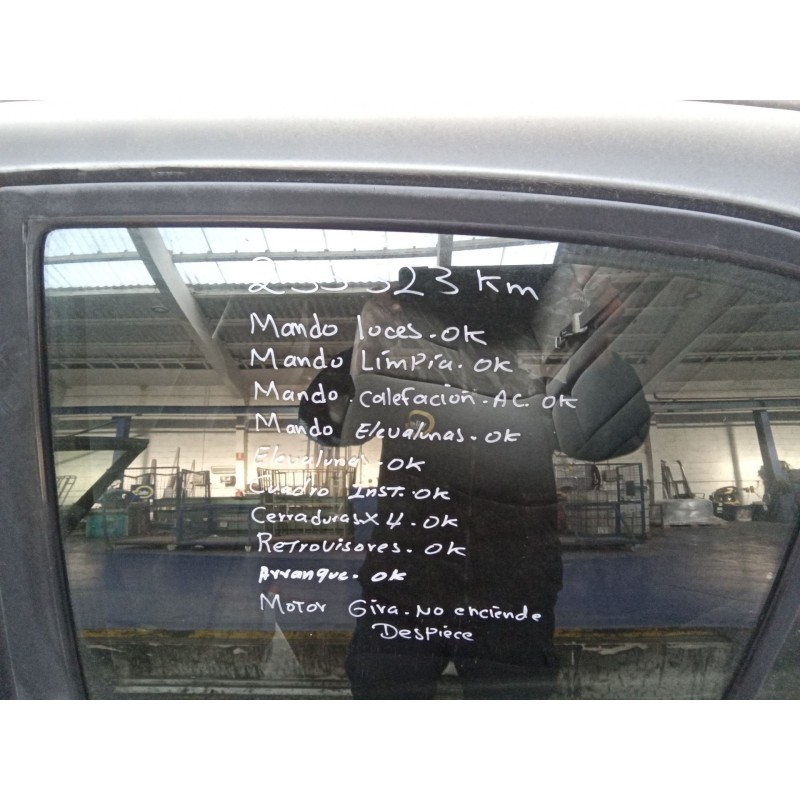 Km
Mando luces. OK
Mando Limpia. OK
Mando. Calefacion. A.C. OK
Mando Elevalunas. OK
Elevalunas. OK
Cuadro Inst. OK
Cerraduras X 4. OK
Retrovisores. OK
Arranque. OK
Motor Gira. No enciende
Despiece